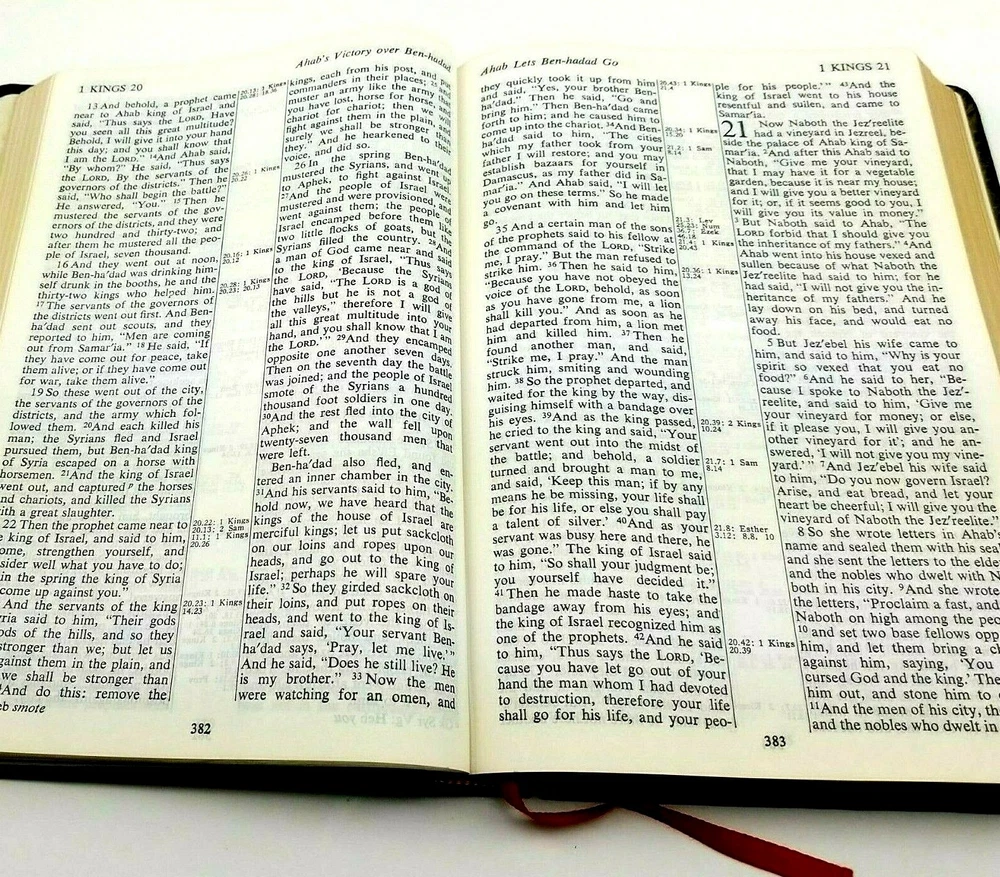 Ahab's Victory over Ben-hadad
1 KINGS 20
13 And behold, a prophet came
near to Ahab king of Israel and
said, "Thus says the LORD, Have
you seen all this great multitude?
Behold, I will give it into your hand
this day; and you shall know that
I am the LORD." 14And Ahab said,
"By whom?" He said, "Thus says
the LORD, By the servants of the
governors of the districts." Then he
said, "Who shall begin the battle?"
He answered, "You." 15Then he
mustered the servants of the gov-
ernors of the districts, and they were
two hundred and thirty-two; and
after them he mustered all the peo-
ple of Israel, seven thousand.
16 And they went out at noon,
while Ben-ha′dad was drinking him-
self drunk in the booths, he and the
thirty-two kings who helped him.
17The servants of the governors of
the districts went out first. And Ben-
ha′dad sent out scouts, and they
reported to him, "Men are coming
out from Samar′ia." 18He said, "If
they have come out for peace, take
them alive; or if they have come out
for war, take them alive."
19 So these went out of the city,
the servants of the governors of the
districts, and the army which fol-
lowed them. 20And each killed his
man; the Syrians fled and Israel
pursued them, but Ben-ha′dad king
of Syria escaped on a horse with
horsemen. 21And the king of Israel
went out, and captured p the horses
and chariots, and killed the Syrians
with a great slaughter.
22 Then the prophet came near to
e king of Israel, and said to him,
ome, strengthen yourself, and
sider well what you have to do;
in the spring the king of Syria
come up against you."
And the servants of the king
ria said to him, "Their gods
ods of the hills, and so they
stronger than we; but let us
gainst them in the plain, and
we shall be stronger than
And do this: remove the
eb smote
20.26: 1 Kings
20.22
20.16: 1 Kings
20.12
20.28: 1 Kings
20.23; 20.13
20.22: 1 Kings
20.13; 2 Sam
11.1; 1 Kings
20.26
20.23: 1 Kings
14.23
kings, each from his post, and put
commanders in their places; 25and
muster an army like the army that
you have lost, horse for horse, and
chariot for chariot; then we will
fight against them in the plain, and
surely we shall be stronger than
they." And he hearkened to their
voice, and did so.
26 In the spring Ben-ha′dad
mustered the Syrians, and went up
to Aphek, to fight against Israel.
27And the people of Israel were
mustered and were provisioned, and
went against them; the people of
Israel encamped before them like
two little flocks of goats, but the
Syrians filled the country. 28And
a man of God came near and said
to the king of Israel, "Thus says
the LORD, 'Because the Syrians
have said, "The LORD is a god of
the hills but he is not a god of
the valleys," therefore I will give
all this great multitude into your
hand, and you shall know that I am
the LORD.'" 29And they encamped
opposite one another seven days.
Then on the seventh day the battle
was joined; and the people of Israel
smote of the Syrians a hundred
thousand foot soldiers in one day.
30And the rest fled into the city of
Aphek; and the wall fell upon
twenty-seven thousand men that
were left.
Ben-ha′dad also fled, and en-
tered an inner chamber in the city.
31And his servants said to him, "Be-
hold now, we have heard that the
kings of the house of Israel are
merciful kings; let us put sackcloth
on our loins and ropes upon our
heads, and go out to the king of
Israel; perhaps he will spare your
life." 32So they girded sackcloth on
their loins, and put ropes on their
heads, and went to the king of Is-
rael and said, "Your servant Ben-
ha′dad says, 'Pray, let me live.'"
And he said, "Does he still live? He
is my brother." 33Now the men
were watching for an omen, and
382
Ahab Lets Ben-hadad Go
1 KINGS 21
they quickly took it up from him
and said, "Yes, your brother Ben-
ha′dad." Then he said, "Go and
bring him." Then Ben-ha′dad came
forth to him; and he caused him to
come up into the chariot. 34And Ben-
ha′dad said to him, "The cities
which my father took from your
father I will restore; and you may
establish bazaars for yourself in
Damascus, as my father did in Sa-
mar′ia." And Ahab said, "I will let
you go on these terms." So he made
a covenant with him and let him
go.
35 And a certain man of the sons
of the prophets said to his fellow at
the command of the LORD, "Strike
me, I pray." But the man refused to
strike him. 36Then he said to him,
"Because you have not obeyed the
voice of the LORD, behold, as soon
as you have gone from me, a lion
shall kill you." And as soon as he
had departed from him, a lion met
him and killed him. 37Then he
found another man, and said,
"Strike me, I pray." And the man
struck him, smiting and wounding
him. 38So the prophet departed, and
waited for the king by the way, dis-
guising himself with a bandage over
his eyes. 39And as the king passed,
he cried to the king and said, "Your
servant went out into the midst of
the battle; and behold, a soldier
turned and brought a man to me,
and said, 'Keep this man; if by any
means he be missing, your life shall
be for his life, or else you shall pay
a talent of silver.' 40And as your
servant was busy here and there, he
was gone." The king of Israel said
to him, "So shall your judgment be;
you yourself have decided it."
41Then he made haste to take the
bandage away from his eyes; and
the king of Israel recognized him as
one of the prophets. 42And he said
to him, "Thus says the LORD, 'Be-
cause you have let go out of your
hand the man whom I had devoted
to destruction, therefore your life
shall go for his life, and your peo-
20.43: 1 Kings
21.4
20.34: 1 Kings
15.20
21.2: 1 Sam
8.14
21.3: Lev
20.36: 1 Kings
13.24
20.39: 2 Kings
10.24
21.7: 1 Sam
8.14
21.8: Esther
3.12; 8.8, 10
20.42: 1 Kings
20.39
ple for his people.'" 43And the
king of Israel went to his house
resentful and sullen, and came to
Samar′ia.
21 Now Naboth the Jez′reelite
had a vineyard in Jezreel, be-
side the palace of Ahab king of Sa-
mar′ia. 2And after this Ahab said to
Naboth, "Give me your vineyard,
that I may have it for a vegetable
garden, because it is near my house;
and I will give you a better vineyard
for it; or, if it seems good to you, I
will give you its value in money."
3But Naboth said to Ahab, "The
LORD forbid that I should give you
the inheritance of my fathers." 4And
Ahab went into his house vexed and
sullen because of what Naboth the
Jez′reelite had said to him; for he
had said, "I will not give you the in-
heritance of my fathers." And he
lay down on his bed, and turned
away his face, and would eat no
food.
5 But Jez′ebel his wife came to
him, and said to him, "Why is your
spirit so vexed that you eat no
food?" 6And he said to her, "Be-
cause I spoke to Naboth the Jez′-
reelite, and said to him, 'Give me
your vineyard for money; or else,
if it please you, I will give you an-
other vineyard for it'; and he an-
swered, 'I will not give you my vine-
yard.'" 7And Jez′ebel his wife said
to him, "Do you now govern Israel?
Arise, and eat bread, and let your
heart be cheerful; I will give you the
vineyard of Naboth the Jez′reelite."
8 So she wrote letters in Ahab's
name and sealed them with his seal
and she sent the letters to the elde
and the nobles who dwelt with N
both in his city. 9And she wrote
the letters, "Proclaim a fast, and
Naboth on high among the peo
10 and set two base fellows opp
him, and let them bring a ch
against him, saying, 'You
cursed God and the king.' The
him out, and stone him to d
11And the men of his city, th
and the nobles who dwelt in
383